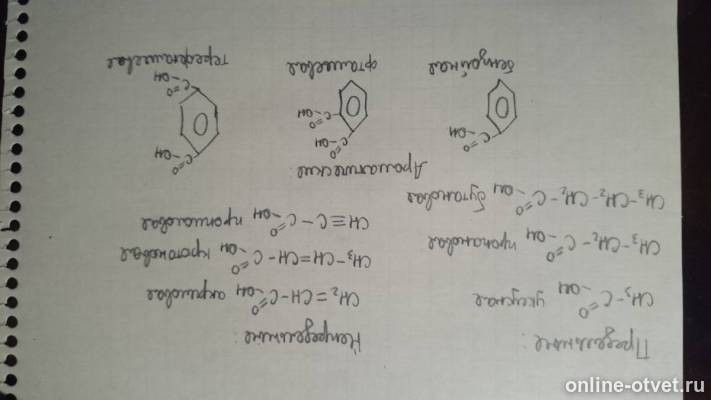 Предельные:
CH₃–C=O –OH уксусная
CH₃–CH₂–C=O –OH пропановая
CH₃–CH₂–CH₂–C=O –OH бутановая
Непредельные:
CH₂=CH–C=O –OH акриловая
CH₃–CH=CH–C=O –OH кротоновая
CH≡C–C=O –OH пропиоловая
Ароматические:
C=O –OH
бензойная
C=O –OH
C=O –OH
фталевая
C=O –OH
C=O –OH
терефталевая
online-otvet.ru